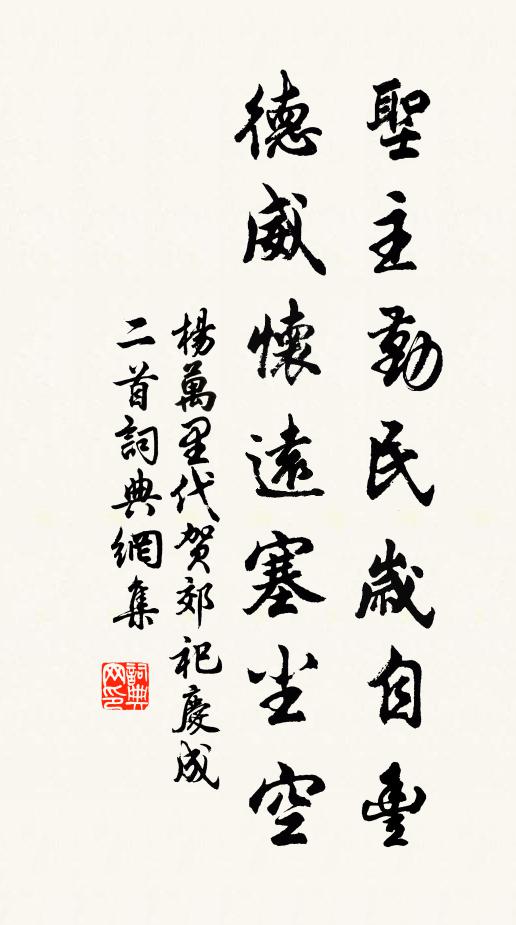 聖主勤民歲自豐
德威懷遠塞尘空
楊萬里代贺郊祀慶成
二首詞典網集
詞典
网印